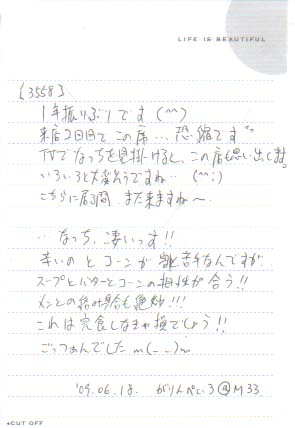 LIFE IS BEAUTIFUL
[3558]
1年振りぶりです (^^)
来店2回目で、この席… 恐縮です
TVでなっちを見掛けると、この店も思い出します。
いろいろと大変そうですね… (^^;)
こちらに居る間、また来ますね〜
…なっち、凄いっす!!
辛いのとコーンが 苦手なんですが、
スープとバターとコーンの相性が合う!!
メンとの絡み具合も絶妙!!!
これは完食しなきゃ損でしょう!!
ごっつぁんでした m(_ _)m
'09.06.18. がりんぺい.3 M33.
*CUT OFF